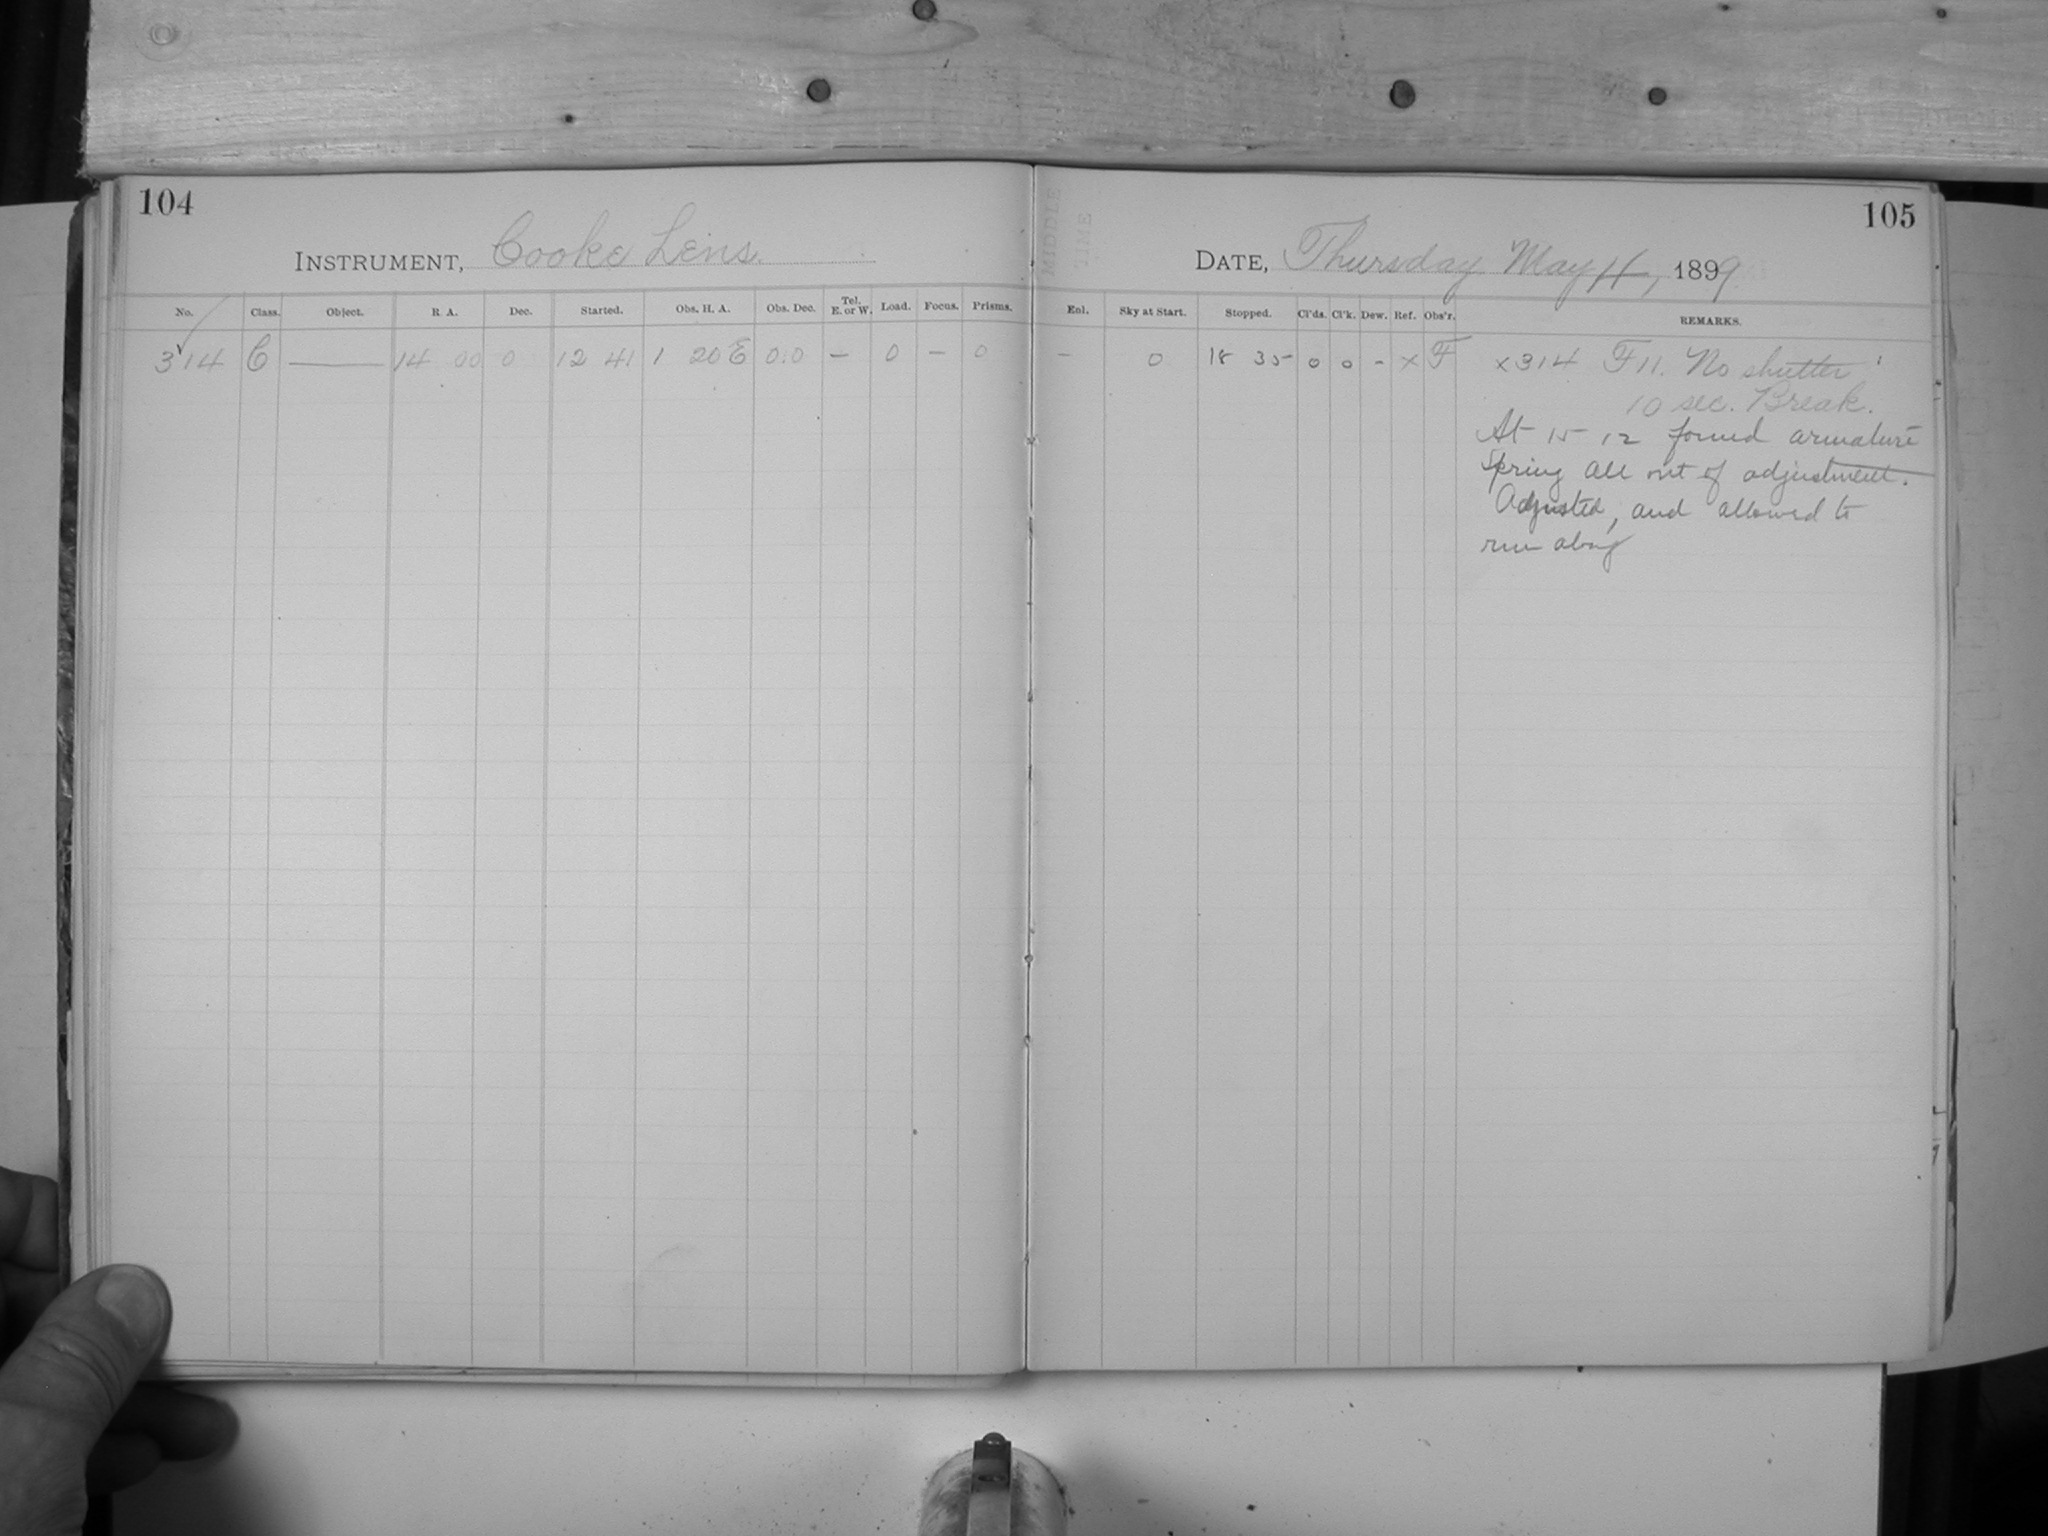 104
INSTRUMENT, Cooke Lens.
No. Class. Object. R. A. Dec. Started. Obs. H. A. Obs. Dec. Tel. E. or W. Load. Focus. Prisms.
314 C —— 14 00 0 12 41 1 20 E 0.0 – 0 – 0
MIDDLE
TIME
105
DATE, Thursday May 11, 1899
Enl. Sky at Start. Stopped. Cl'ds. Cl'k. Dew. Ref. Obs'r. REMARKS.
– 0 18 35 0 0 – x F x 314 F 11. No shutter
10 sec. Break.
At 15 12 found armature
spring all out of adjustment.
Adjusted, and allowed to
run along